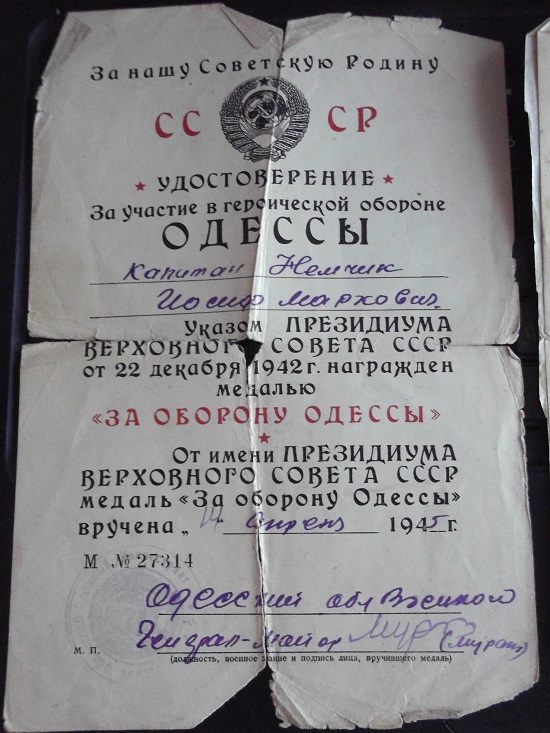 За нашу Советскую Родину
СС СР
УДОСТОВЕРЕНИЕ
За участие в героической обороне
ОДЕССЫ
Капитан Немчик
Иосиф Маркович
Указом ПРЕЗИДИУМА
ВЕРХОВНОГО СОВЕТА СССР
от 22 декабря 1942 г. награжден
медалью
«ЗА ОБОРОНУ ОДЕССЫ»
От имени ПРЕЗИДИУМА
ВЕРХОВНОГО СОВЕТА СССР
медаль «За оборону Одессы»
вручена „ " Апреля 1945 г.
М № 27314
Одесский обл Военком
Генерал-майор
М. П.
(должность, военное звание и подпись лица, вручившего медаль)